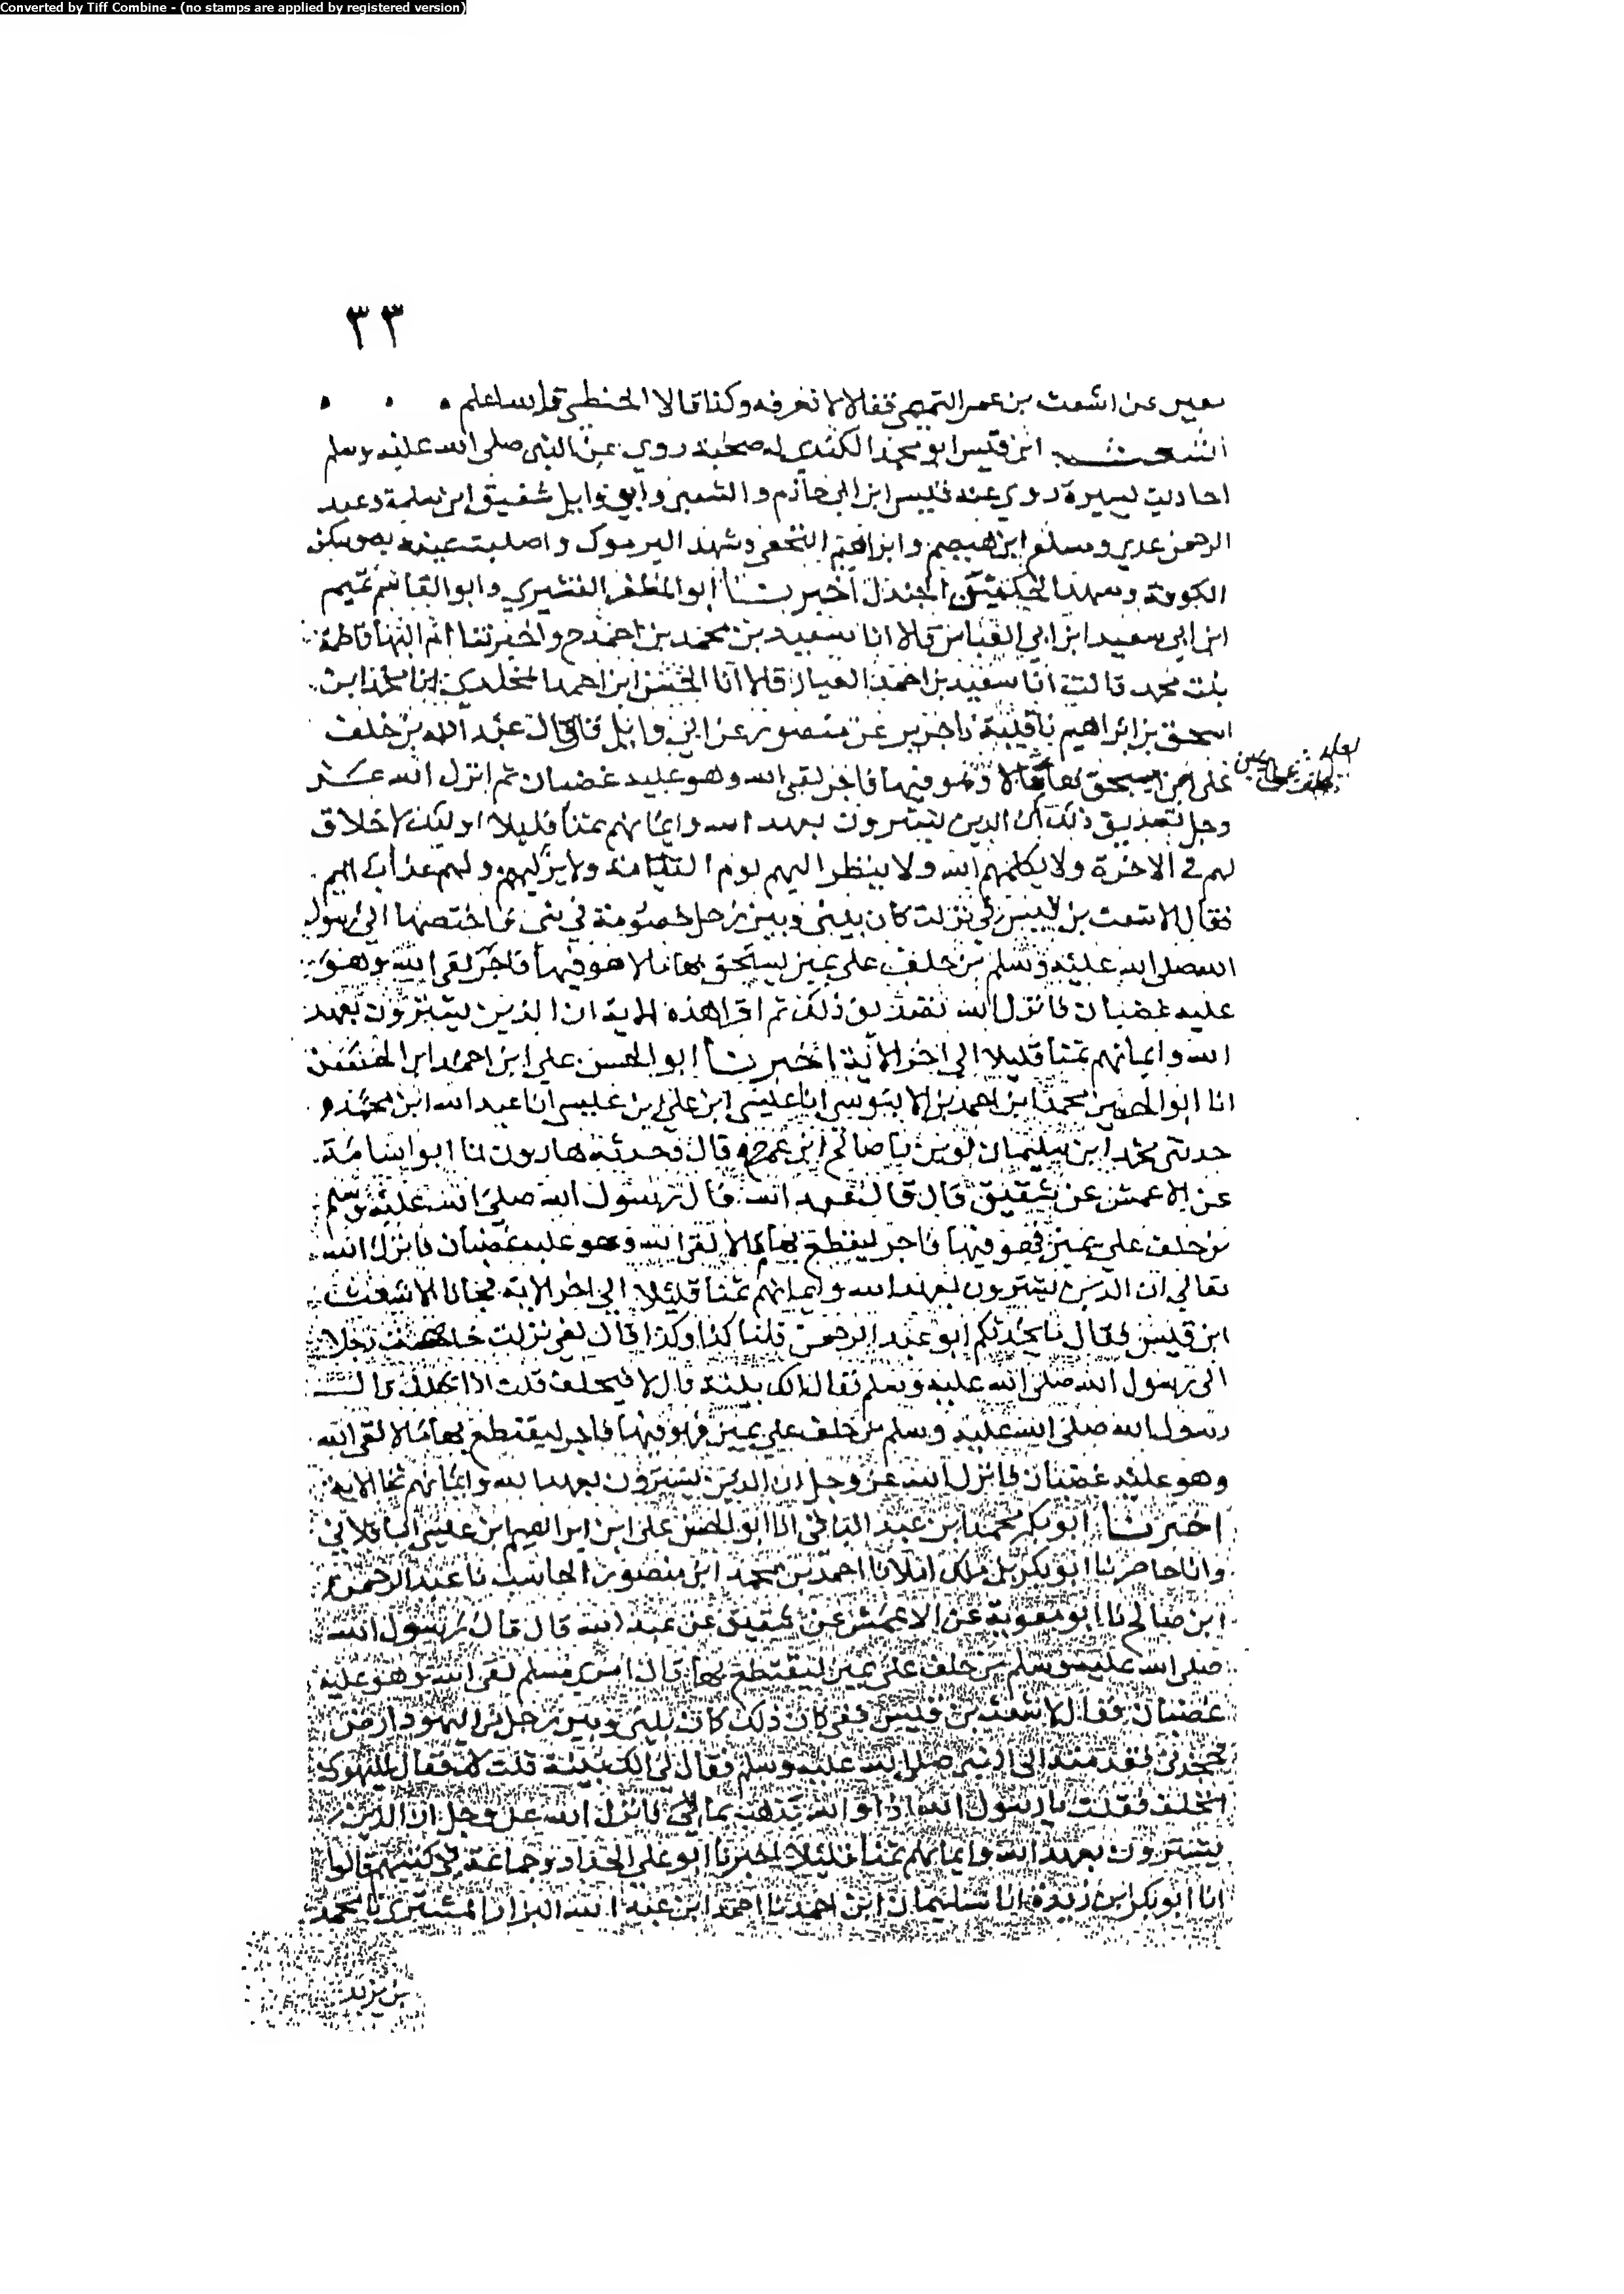 Converted by Tiff Combine - (no stamps are applied by registered version)
٣٣
معين عن اشعث بن عمر التميمي فقالا لا نعرفه وكذا قالا الحنظلي والله اعلم
اشعث ابن قيس ابو محمد الكندي له صحبة روي عن النبي صلى الله عليه وسلم
احاديث يسيرة روي عنه قيس ابن ابي حازم والشعبي وابي وايل شقيق ابن سلمة وعبد
الرحمن عدي ومسلم ابن هيصم وابراهيم النخعي وشهد اليرموك واصيبت عينه به وسكن
الكوفة وشهد الحكمين الجندل اخبرنا ابو المظفر القشيري وابو القاسم تميم
ابن ابي سعيد ابن ابي العباس قالا انا سعيد بن محمد بن احمد ح واخبرتنا ام البها فاطمة
بنت محمد قالت انا سعيد بن احمد العيار قالا انا الحسن ابن احمد المخلدي انا محمد ابن
اسحق بن ابراهيم نا قتيبة نا جرير عن منصور عن ابي وايل قال قال عبد الله من حلف
لعله
على يمين يستحق بها مالا وهو فيها فاجر لقي الله وهو عليه غضبان ثم انزل الله عز
وجل تصديق ذلك ان الذين يشترون بعهد الله وايمانهم ثمنا قليلا اولئك لا خلاق
لهم في الاخرة ولا يكلمهم الله ولا ينظر اليهم يوم القيامة ولا يزكيهم ولهم عذاب اليم
فقال الاشعث بن قيس في نزلت كان بيني وبين رجل خصومة في شي فاختصمنا الى رسول
الله صلى الله عليه وسلم من حلف على يمين يستحق بها مالا هو فيها فاجر لقي الله وهو
عليه غضبان فانزل الله تصديق ذلك ثم اقرا هذه الاية ان الذين يشترون بعهد
الله وايمانهم ثمنا قليلا الى اخر الاية اخبرنا ابو الحسن علي ابن احمد ابن الحسن
انا ابو الحسين محمد ابن احمد بن الابنوسي انا عيسى ابن علي ابن عيسى انا عبد الله ابن محمد و
حدثني محمد ابن سليمان لوين نا صالح ابن عمر قال وحدثنا هارون نا ابو اسامة
عن الاعمش عن شقيق قال قال عبد الله قال رسول الله صلى الله عليه وسلم
من حلف على يمين وهو فيها فاجر ليقطع بها مالا لقي الله وهو عليه غضبان فانزل الله
تعالى ان الذين يشترون بعهد الله وايمانهم ثمنا قليلا الى اخر الاية فجانا الاشعث
ابن قيس فقال ما يحدثكم ابو عبد الرحمن قلنا كذا وكذا قال لفي نزلت خاصمت رجلا
الى رسول الله صلى الله عليه وسلم فقال الك بينة قال لا فيحلف قلت اذا يحلف قال
رسول الله صلى الله عليه وسلم من حلف على يمين وهو فيها فاجر ليقتطع بها مالا لقي الله
وهو عليه غضبان فانزل الله عز وجل ان الذين يشترون بعهد الله وايمانهم ثمنا الاية
اخبرنا ابو بكر محمد ابن عبد الباقي انا ابو الحسن علي ابن ابراهيم ابن عيسى الباقلاني
وانا حاضر نا ابو بكر بن ملك املا نا احمد بن محمد ابن منصور الحاسب نا عبد الرحمن
ابن صالح نا ابو معوية عن الاعمش عن شقيق عن عبد الله قال قال رسول الله
صلى الله عليه وسلم من حلف على يمين ليقتطع بها مال امرئ مسلم لقي الله وهو عليه
غضبان فقال الاشعث بن قيس في كان ذلك كان بيني وبين رجل من اليهود ارض
فجحدني فقدمته الى النبي صلى الله عليه وسلم فقال لي الك بينة قلت لا فقال لليهودي
احلف فقلت يا رسول الله اذا والله يذهب بمالي فانزل الله عز وجل ان الذين
يشترون بعهد الله وايمانهم ثمنا قليلا اخبرنا ابو علي الحداد وجماعة في كتبهم قالوا
انا ابو بكر ابن ريذه انا سليمان ابن احمد نا احمد ابن عبد الله البزار التستري نا محمد
بن يزيد